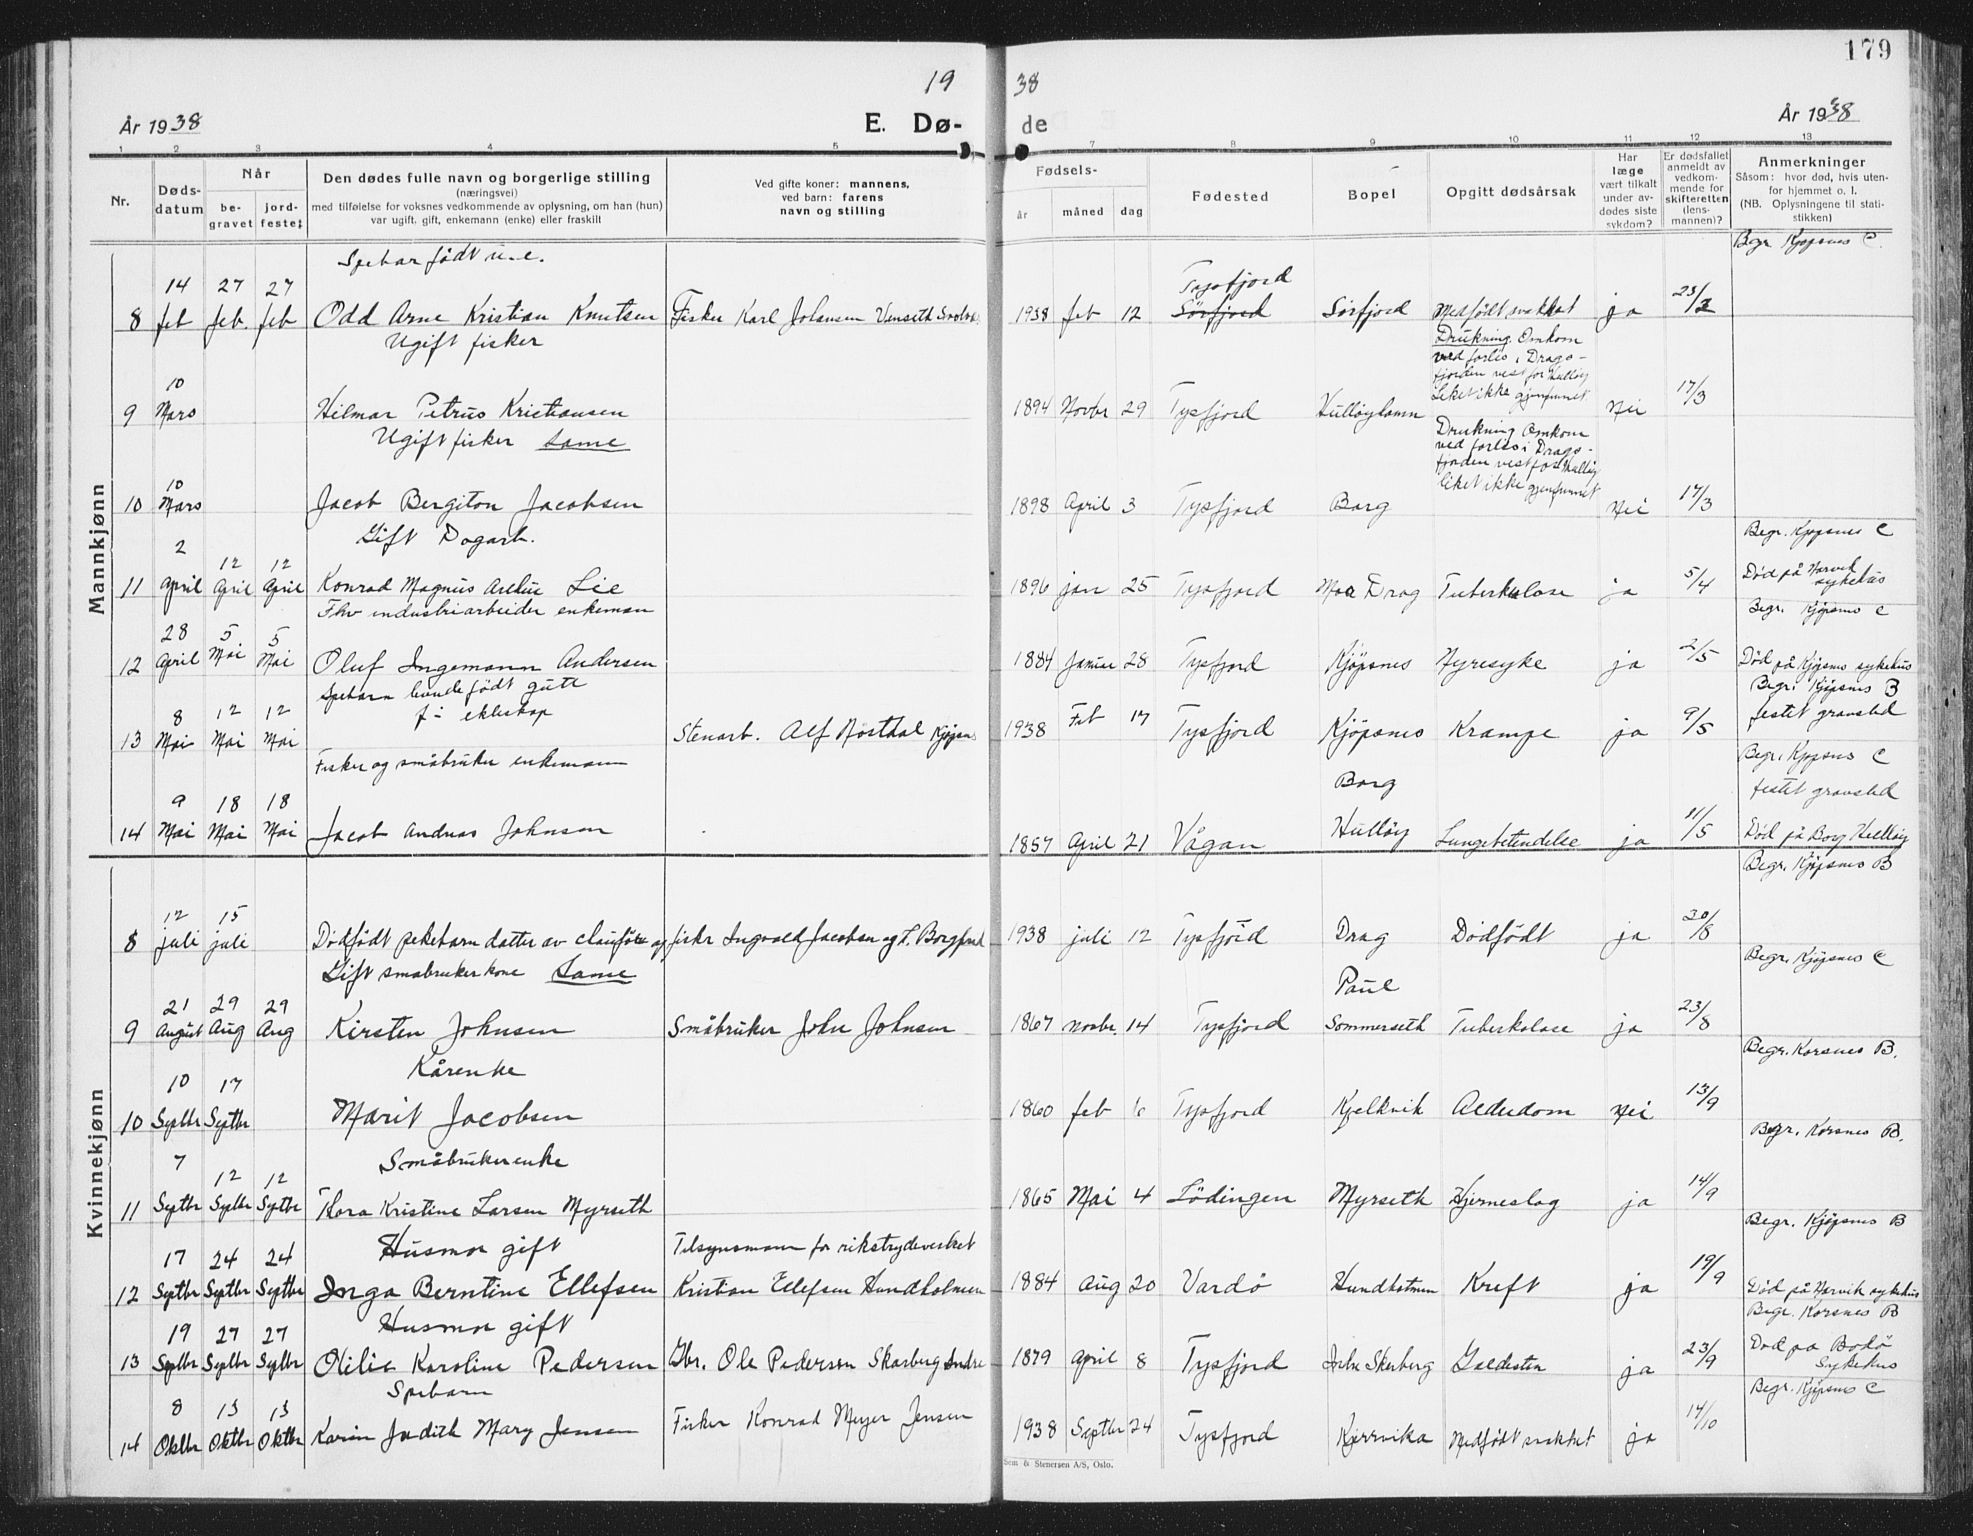 179
19 38
År 1938
E. Dø-de
År 1938
1 2 3 4 5 7 8 9 10 11 12 13
Nr.
Døds-datum
Når
be-gravet
jord-festet
Den dødes fulle navn og borgerlige stilling
(næringsvei)
med tilføielse for voksnes vedkommende av oplysning, om han (hun)
var ugift, gift, enkemann (enke) eller fraskilt
Ved gifte koner: mannens,
ved barn: farens
navn og stilling
Fødsels-
år måned dag
Fødested
Bopel
Opgitt dødsårsak
Har læge vært tilkalt under av-dødes siste sykdom?
Er dødsfallet anmeldt av vedkom-mende for skifteretten (lens-mannen)?
Anmerkninger
Såsom: hvor død, hvis uten-for hjemmet o. l.
(NB. Oplysningene til stati-stikken)
Mannkjønn
Spebar født u. e. Begr. Kjøpsnes C.
14 27 27 Tysfjord
8 feb feb. feb Odd Arne Kristian Knutsen Fisker Karl Johansen 1938 feb 12 Sørfjord Sørfjord Medfødt svakhet ja 23/2
Ugift fisker Drukning. Omkom
ved forlis i Drags-
fjorden vest for Hulløy
Liket ikke gjenfunnet
10
9 Mars Hilmar Petrus Kristiansen 1894 Novbr 29 Tysfjord Hulløyhamn Nei 17/3
Ugift fisker Same Drukning Omkom
ved forlis i Drags-
fjorden vest for Hulløy
liket ikke gjenfunnet
10
10 Mars Jacob Bergiton Jacobsen 1898 April 3 Tysfjord Borg Nei 17/3
Gift Dagarb. Begr. Kjøpsnes C
2 12 12 Død på Narvik
11 April April April Konrad Magnus Lie 1896 jan 25 Tysfjord Drag Tuberkulose ja 5/4 sykehus
Fhv industriarbeider enkeman Begr. Kjøpsnes C
28 5 5
12 April Mai Mai Oluf Ingemann Andersen 1884 Januar 28 Tysfjord Kjøpsnes Nyresyke ja 2/5 Død på Kjøpsnes sykehus
Spebarn født gutt Begr. Kjøpsnes B
f i ekteskap festet gravsted
8 12 12
13 Mai Mai Mai Stenarb. Alf Røsthal Kjøpsn 1938 Feb 17 Tysfjord Kjøpsnes Krampe ja 9/5
Fisker og småbruker enkemann Begr. Kjøpsnes C
Borg festet gravsted
9 18 18
14 Mai Mai Mai Jacob Andreas Johnsen 1857 April 21 Vågan Hulløy Lungebetendelse ja 11/5 Død på Borg Hulløy
Kvinnekjønn
Begr. Kjøpsnes B
12 15
8 juli juli Dødfødt pikebarn datter av fiskr Ingvald Jacobsen 1938 juli 12 Tysfjord Drag Dødfødt ja 20/8
Gift småbruker kone Same Begr. Kjøpsnes C
21 29 29 Paul
9 August Aug Aug Kirsten Johnsen Småbruker John Johnsen 1867 novbr. 14 Tysfjord Sommerseth Tuberkulose ja 23/8
Kårenke Begr. Korsnes B.
10 17
10 Septbr Septbr Marit Jacobsen 1860 feb 6 Tysfjord Kjelkvik Alderdom Nei 13/9
Småbrukerenke Begr. Korsnes B.
7 12 12
11 Septbr Septbr Septbr Thora Kristine Larsen Myrseth 1865 Mai 4 Lødingen Myrseth Hjerneslag ja 14/9
Husmor gift Tilsynsmann for rikstrygdeverket Begr. Kjøpsnes B
17 24 24
12 Septbr Septbr Septbr Inga Berntine Ellefsen Kristian Ellefsen Hundholmen 1884 Aug 20 Vardø Hundholmen Kreft ja 19/9 Død på Narvik sykehus
Husmor gift Begr. Korsnes B
19 27 27
13 Septbr Septbr Septbr Otilie Karoline Pedersen Gbr. Ole Pedersen Skarberg Indre 1879 April 8 Tysfjord Indre Skarberg Galdesten ja 23/9 Død på Bodø
Sykehus
Spebarn Begr. Kjøpsnes C
8 13 13
14 Oktbr Oktbr Oktbr Karin Judith Mary Jensen Fisker Konrad Meyer Jensen 1938 Septbr 24 Tysfjord Kjerrvika Medfødt svakhet ja 14/10
Sem & Stenersen A/S, Oslo.